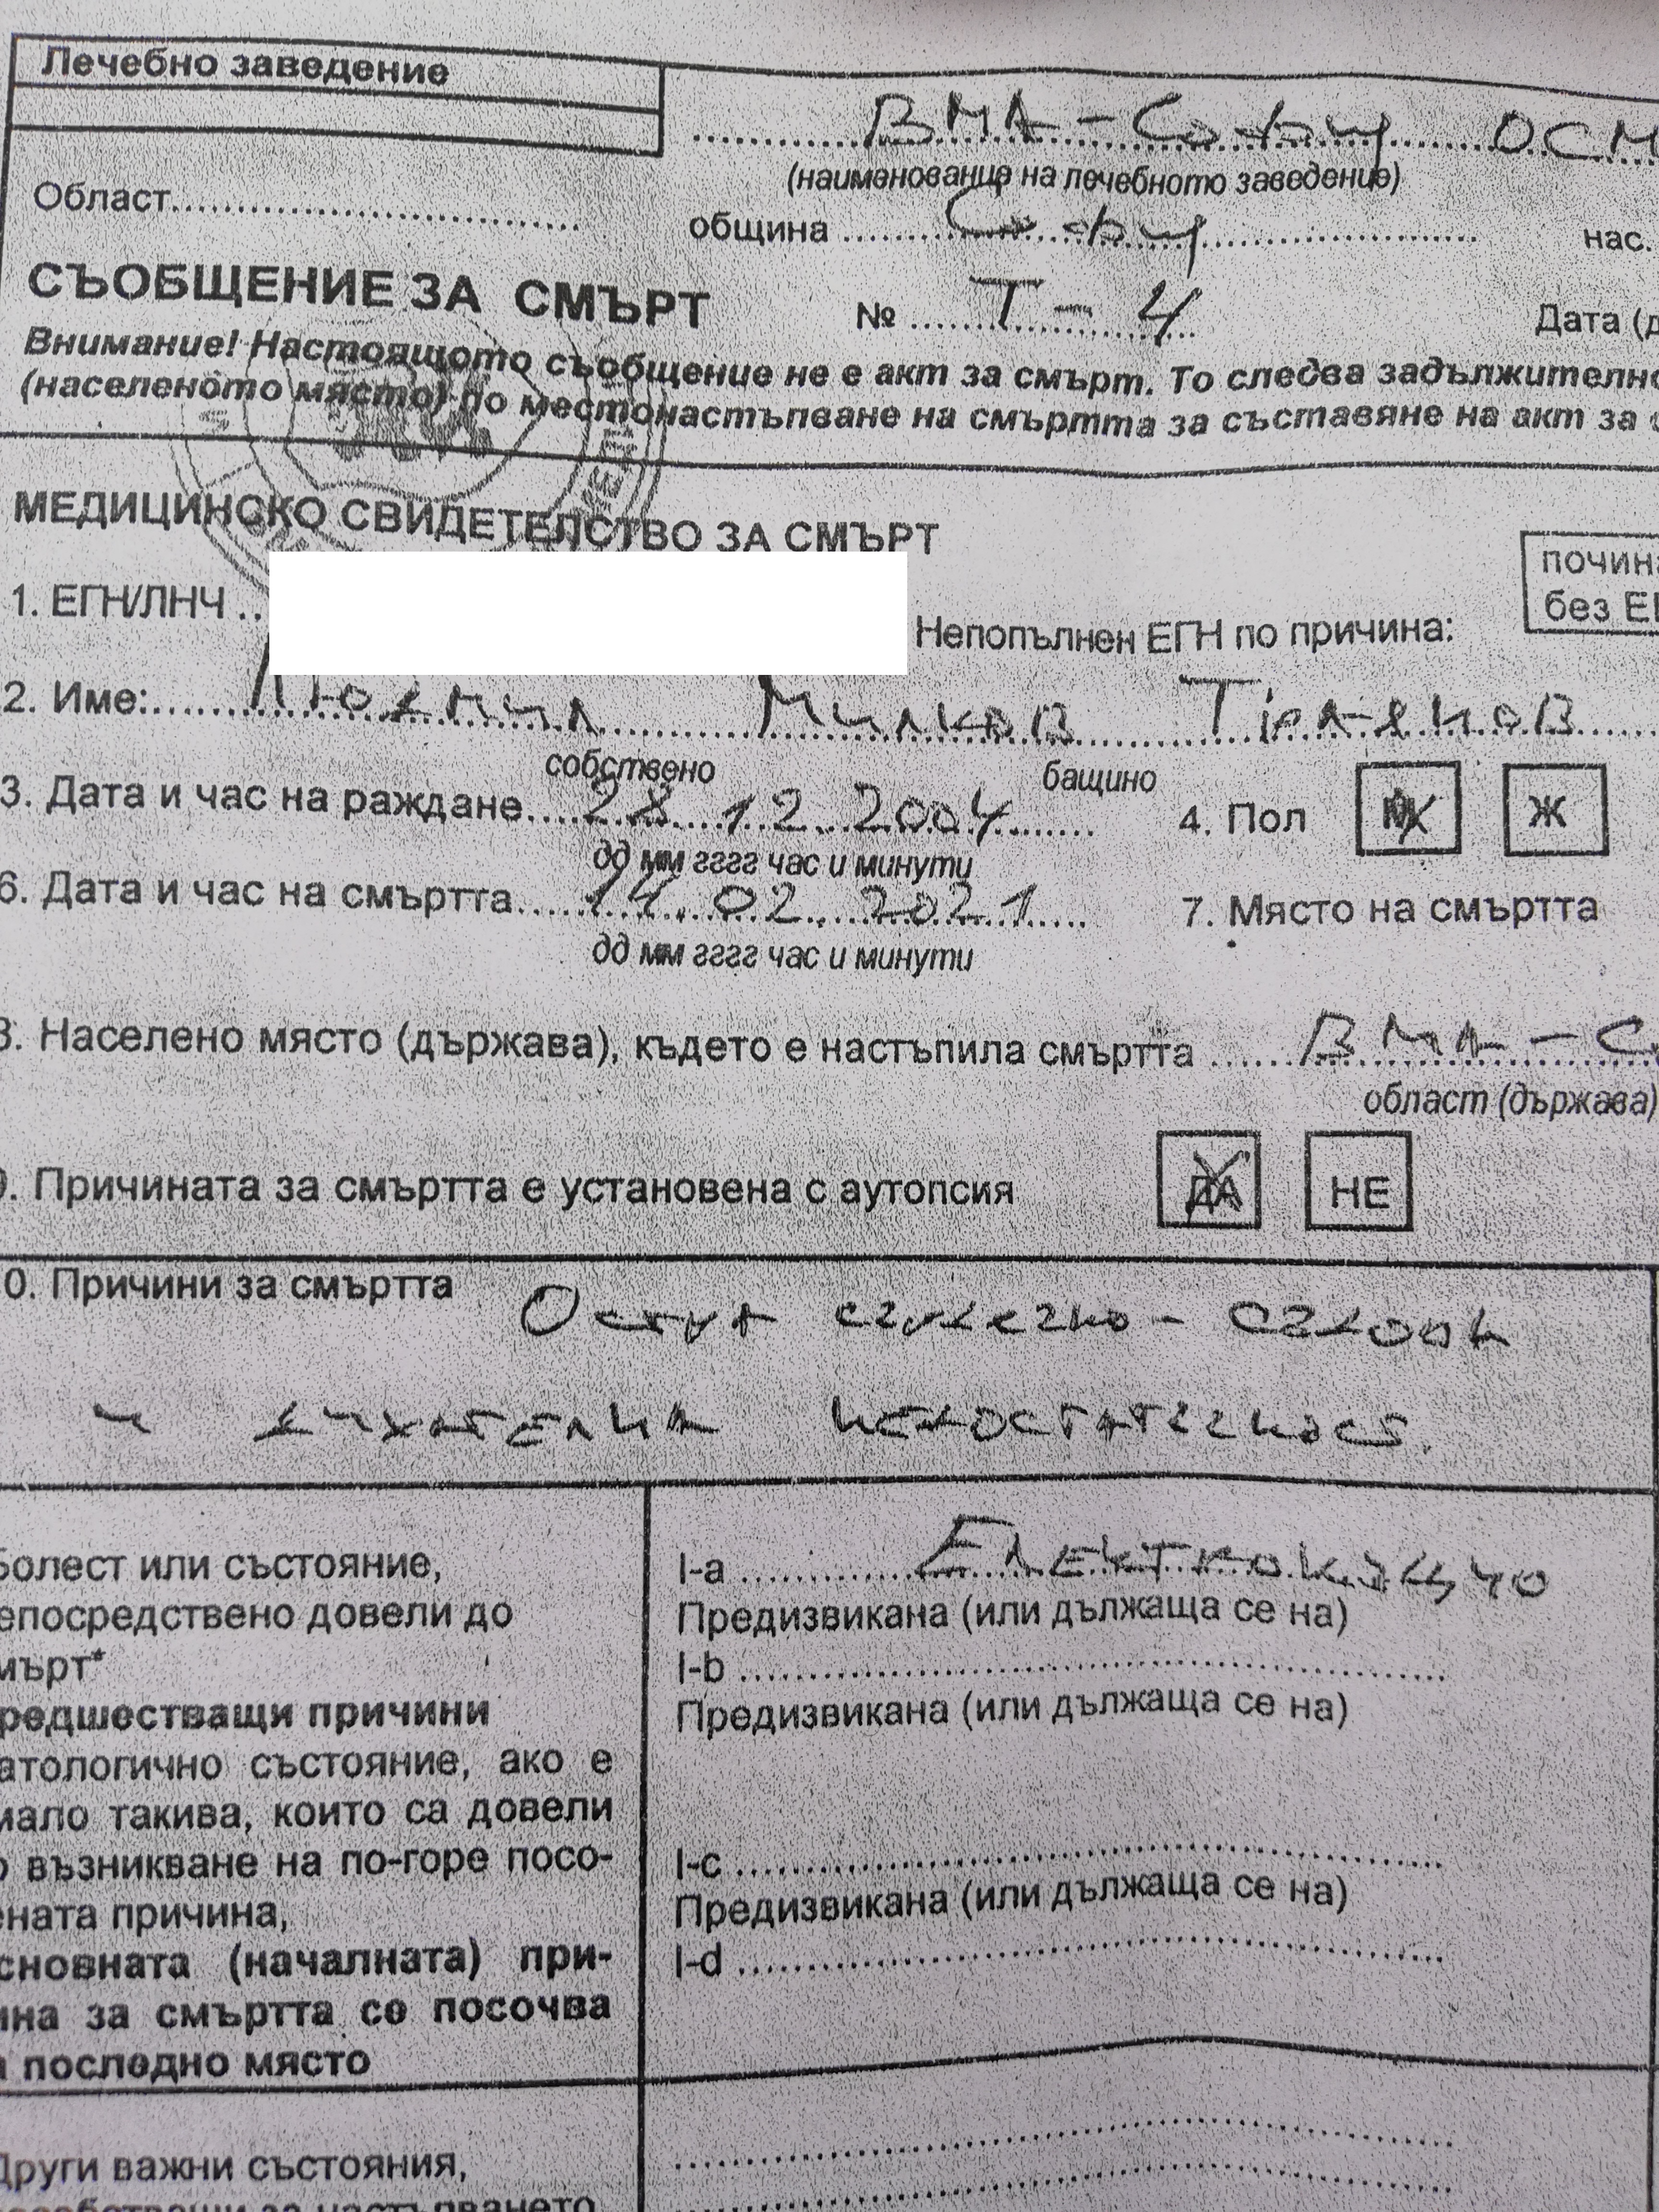 Лечебно заведение
ВМА - София ОСМ
(наименование на лечебното заведение)
Област
община София нас.
СЪОБЩЕНИЕ ЗА СМЪРТ № Т - 4 Дата (д
Внимание! Настоящото съобщение не е акт за смърт. То следва задължително
(населеното място) по местонастъпване на смъртта за съставяне на акт за с
МЕДИЦИНСКО СВИДЕТЕЛСТВО ЗА СМЪРТ
почина
без ЕГ
1. ЕГН/ЛНЧ Непопълнен ЕГН по причина:
2. Име: Милков
собствено бащино
3. Дата и час на раждане 28.12.2004 4. Пол М Ж
дд мм гггг час и минути
6. Дата и час на смъртта 14.02.2021 7. Място на смъртта
дд мм гггг час и минути
8. Населено място (държава), където е настъпила смъртта ВМА - С
област (държава)
9. Причината за смъртта е установена с аутопсия ДА НЕ
0. Причини за смъртта Остра сърдечно - съдова
и дихателна недостатъчност.
Болест или състояние,
епосредствено довели до
мърт*
редшестващи причини
атологично състояние, ако е
мало такива, които са довели
о възникване на по-горе посо-
ената причина,
сновната (началната) при-
ина за смъртта се посочва
а последно място
I-a Електрокуцио
Предизвикана (или дължаща се на)
I-b
Предизвикана (или дължаща се на)
I-c
Предизвикана (или дължаща се на)
I-d
Други важни състояния,